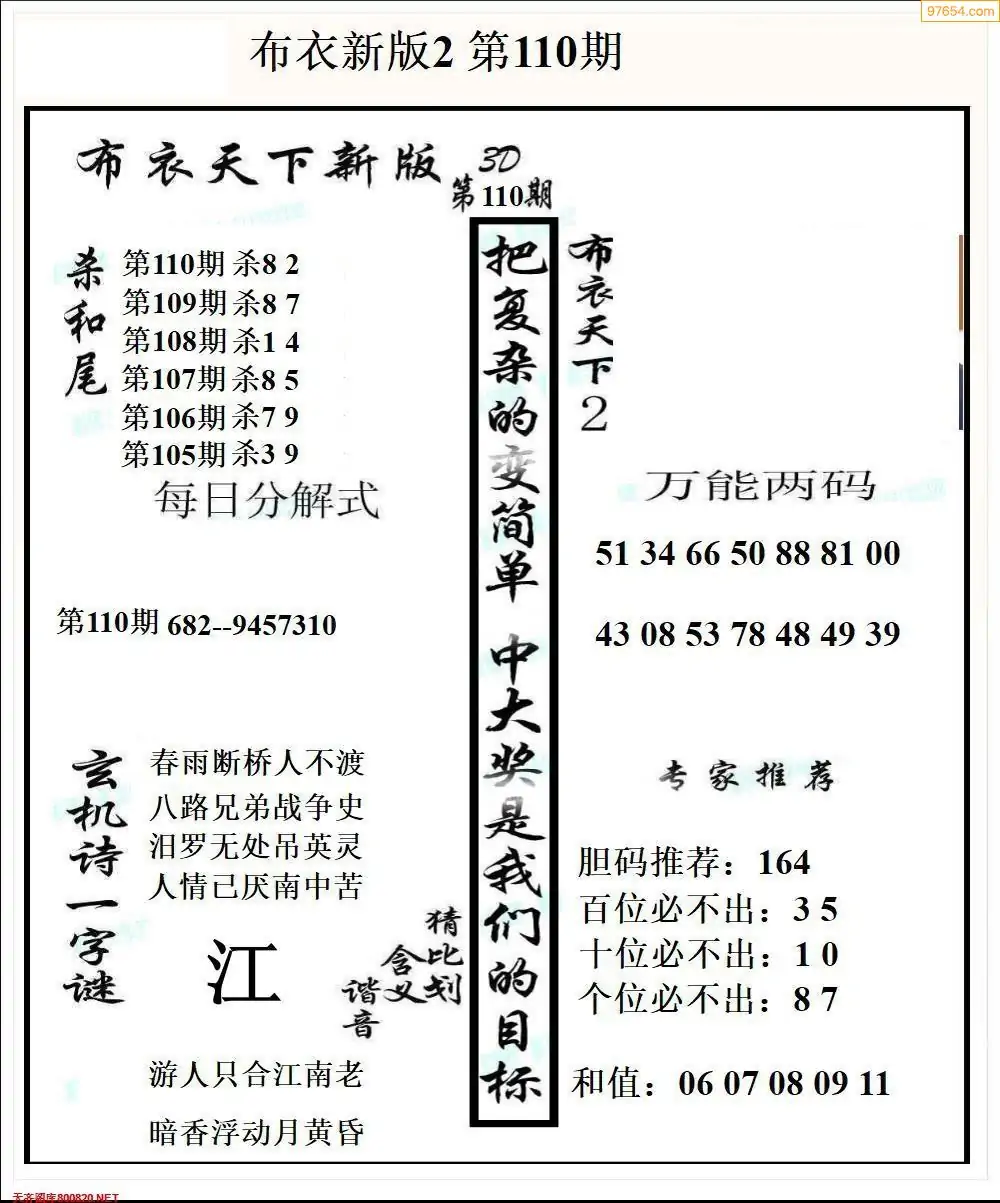 97654.com
布衣新版2 第110期
布衣天下新版
3D
第110期
杀和尾
第110期 杀8 2
第109期 杀8 7
第108期 杀1 4
第107期 杀8 5
第106期 杀7 9
第105期 杀3 9
每日分解式
第110期 682--9457310
把复杂的变简单 中大奖是我们的目标
布衣天下2
万能两码
51 34 66 50 88 81 00
43 08 53 78 48 49 39
玄机诗一字谜
春雨断桥人不渡
八路兄弟战争史
汨罗无处吊英灵
人情已厌南中苦
江
猜比划
含义
谐音
游人只合江南老
暗香浮动月黄昏
专家推荐
胆码推荐：164
百位必不出：3 5
十位必不出：1 0
个位必不出：8 7
和值：06 07 08 09 11
天齐图库800820.NET